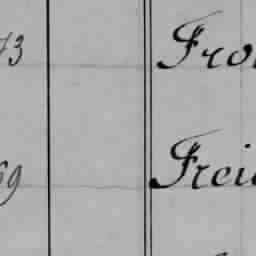 43 Fro
69 Frei